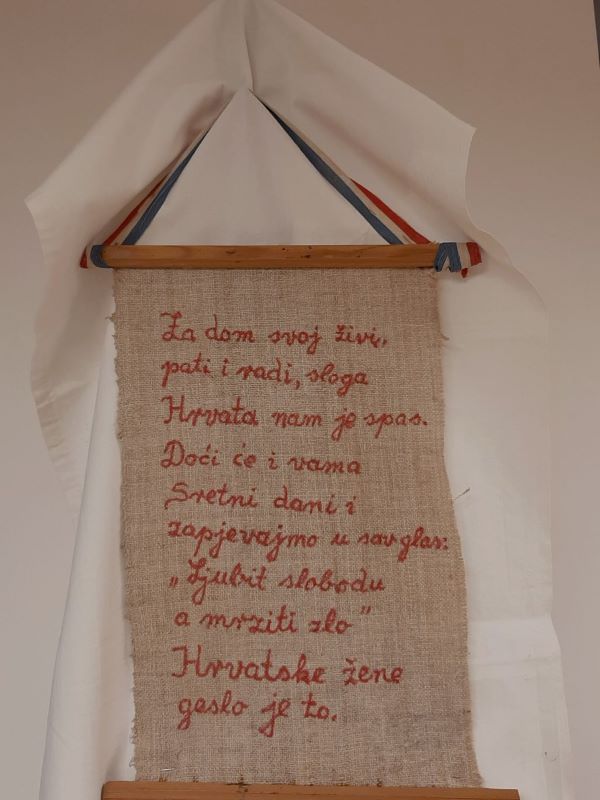 Za dom svoj živi,
pati i radi, sloga
Hrvata nam je spas.
Doći će i vama
Sretni dani i
zapjevajmo u sav glas:
„Ljubit slobodu
a mrziti zlo”
Hrvatske žene
geslo je to.